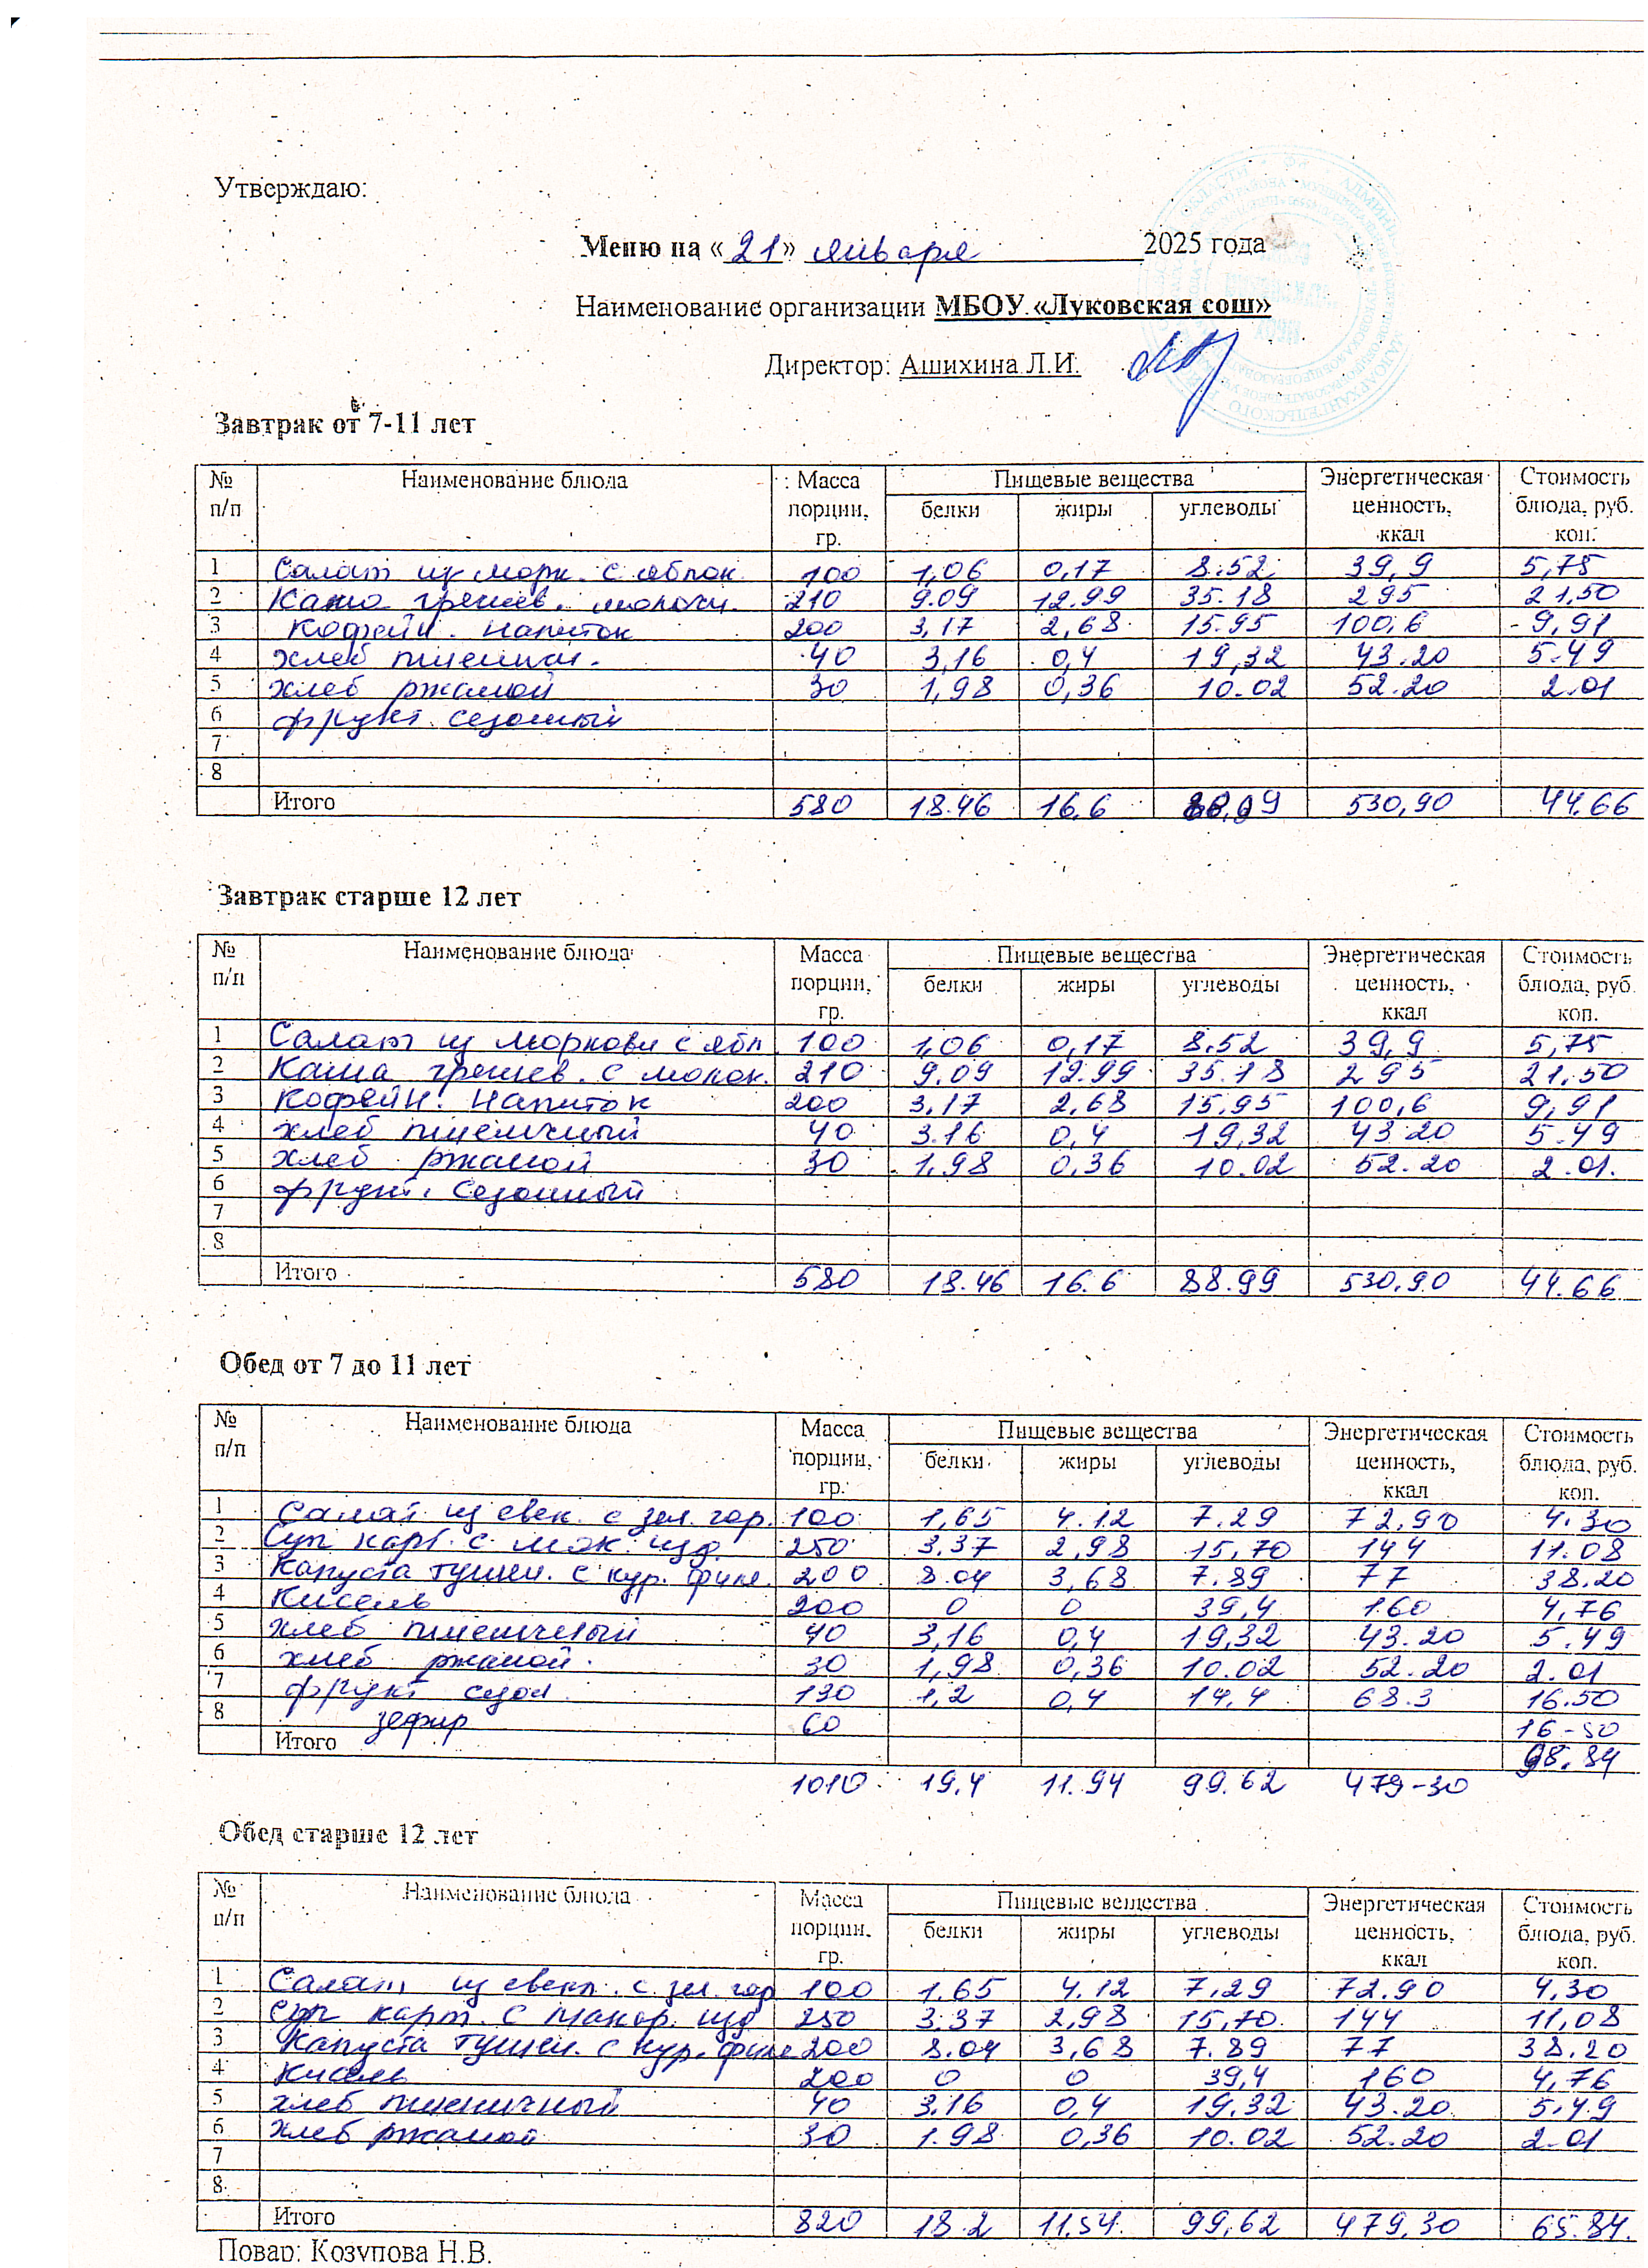 Утверждаю:
Меню на «21» января 2025 года
Наименование организации МБОУ «Луковская сош»
Директор: Ашихина Л.И.
Завтрак от 7-11 лет
№ п/п Наименование блюда Масса порции, гр. Пищевые вещества белки жиры углеводы Энергетическая ценность, ккал Стоимость блюда, руб. коп.
1 Салат из морк. с яблок 100 1,06 0,17 8.52 39,9 5,75
2 Каша гречнев. молочн. 210 9.09 12.99 35.18 295 21,50
3 Кофейн. напиток 200 3,17 2,68 15.95 100,6 9,91
4 хлеб пшенич. 40 3,16 0,4 19,32 43.20 5.49
5 хлеб ржаной 30 1,98 0,36 10.02 52.20 2.01
6 фрукт. сезонный
7
8
Итого 580 18.46 16,6 530,90 44.66
Завтрак старше 12 лет
№ п/п Наименование блюда Масса порции, гр. Пищевые вещества белки жиры углеводы Энергетическая ценность, ккал Стоимость блюда, руб. коп.
1 Салат из моркови с ябл 100 1,06 0,17 8,52 39,9 5,75
2 Каша гречнев. с молок. 210 9,09 12.99 35.18 295 21,50
3 Кофейн. Напиток 200 3,17 2,68 15,95 100,6 9,91
4 хлеб пшеничный 40 3.16 0,4 19,32 43.20 5.49
5 хлеб ржаной 30 1,98 0,36 10.02 52.20 2.01.
6 фрукт. сезонный
7
8
Итого 580 18.46 16.6 88.99 530,90 44.66
Обед от 7 до 11 лет
№ п/п Наименование блюда Масса порции, гр. Пищевые вещества белки жиры углеводы Энергетическая ценность, ккал Стоимость блюда, руб. коп.
1 Салат из свек. с зел. гор. 100 1,65 4.12 7.29 72,90 4.30
2 Суп карт. с мак. изд. 250 3.37 2,98 15,70 144 11.08
3 Капуста тушен. с кур. филе. 200 8.04 3,68 7.89 77 38.20
4 Кисель 200 0 0 39,4 160 4,76
5 хлеб пшеничный 40 3,16 0,4 19,32 43.20 5.49
6 хлеб ржаной. 30 1,98 0,36 10.02 52.20 2.01
7 фрукт сезон. 130 1,2 0,4 14,4 68.3 16.50
8 зефир 60 16-50
Итого 98.84
1010 19,4 11.94 99.62 479-30
Обед старше 12 лет
№ п/п Наименование блюда Масса порции, гр. Пищевые вещества белки жиры углеводы Энергетическая ценность, ккал Стоимость блюда, руб. коп.
1 Салат из свекл. с зел. гор 100 1.65 4.12 7,29 72.90 4,30
2 Суп карт. с макар. изд 250 3.37 2,98 15,70. 144 11,08
3 Капуста тушен. с кур. филе 200 8.04 3,68 7.89 77 38.20
4 Кисель 200 0 0 39,4 160 4,76
5 хлеб пшеничный 40 3.16 0,4 19,32 43.20 5,49
6 хлеб ржаной 30 1.98 0,36 10.02 52.20 2.01
7
8
Итого 820 18.2 11.54 99,62 479,30 65.84.
Повар: Козупова Н.В.